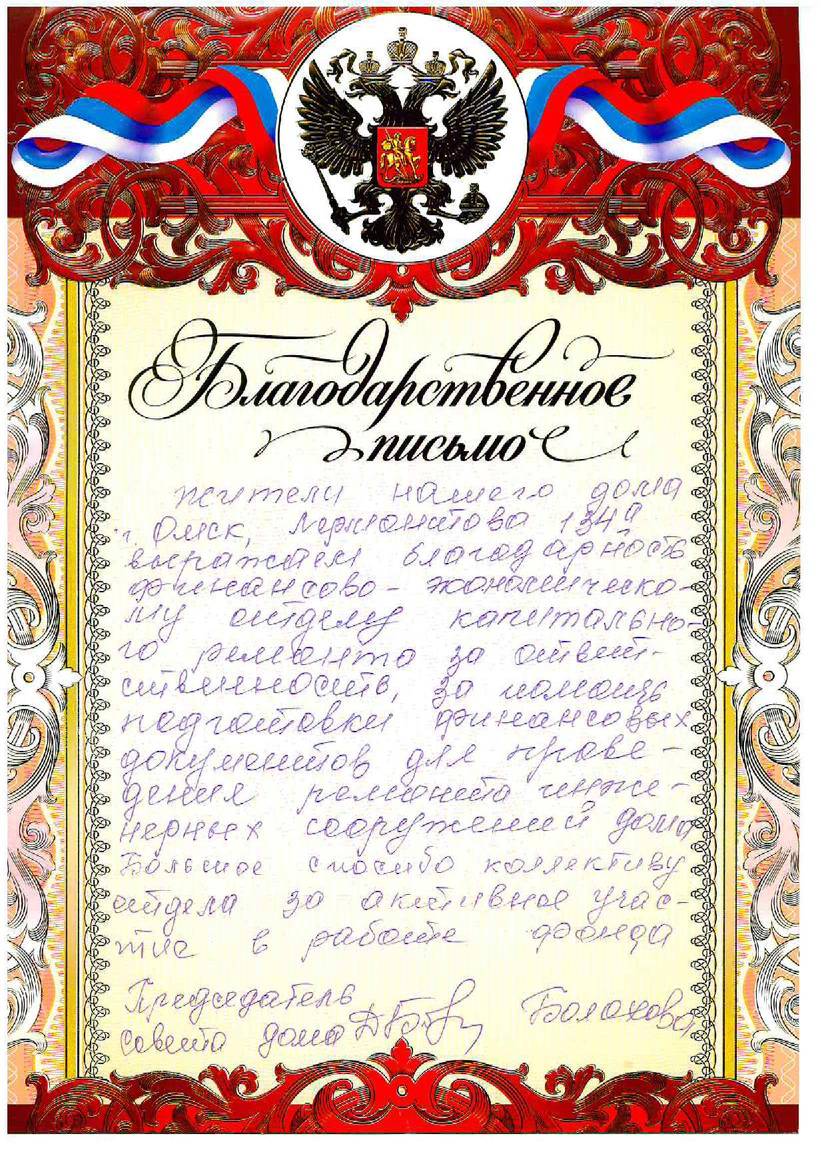 Благодарственное
письмо
жители нашего дома
г. Омск, Лермонтова 134а
выражаем благодарность
финансово-экономическо-
му отделу капитально-
го ремонта за ответ-
ственность, за помощь
подготовки финансовых
документов для прове-
дения ремонта инже-
нерных сооружений дома
Большое спасибо коллективу
отдела за активное учас-
тие в работе фонда
Председатель
совета дома Болахова